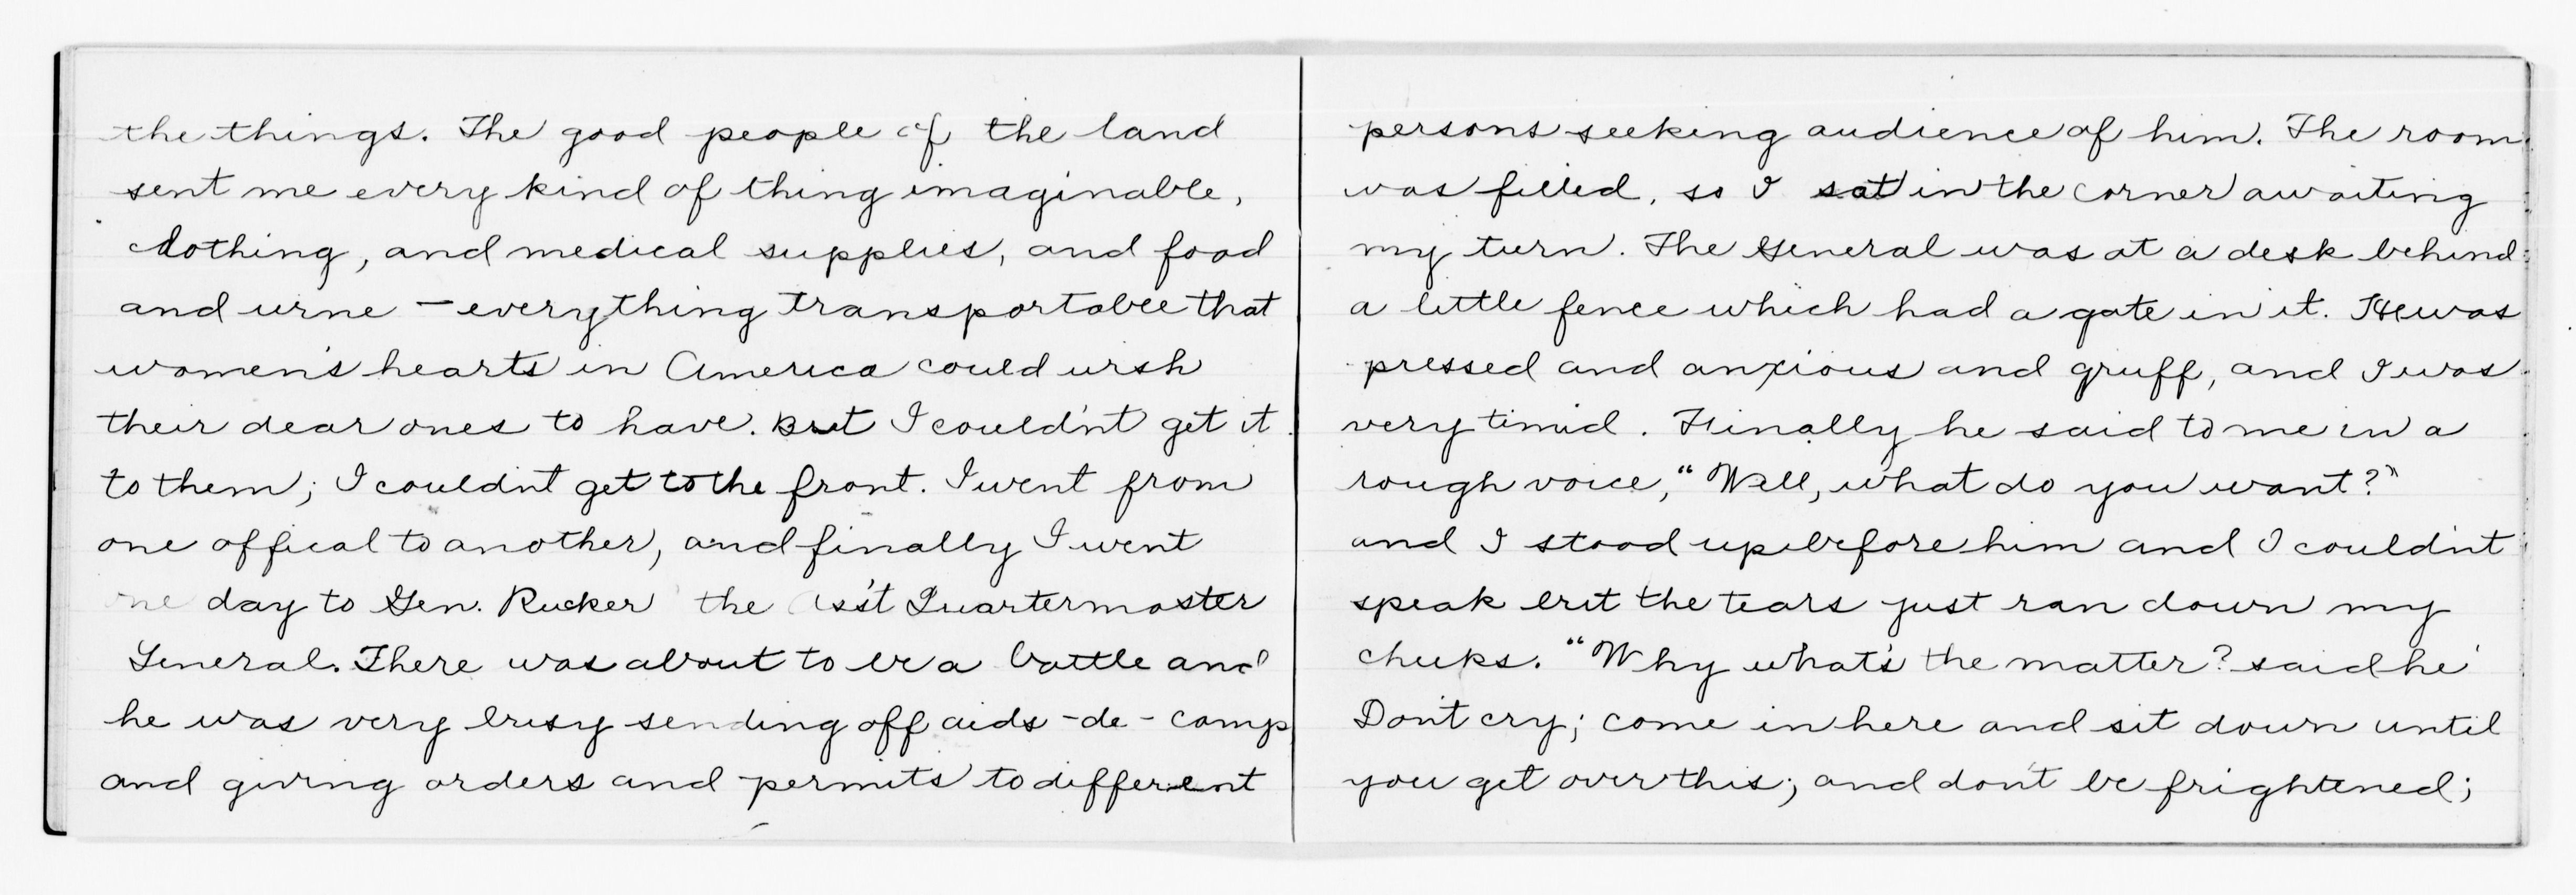 the things. The good people of the land
sent me every kind of thing imaginable,
clothing, and medical supplies, and food
and wine – everything transportable that
women's hearts in America could wish
their dear ones to have. But I couldn't get it
to them; I couldn't get to the front. I went from
one offical to another, and finally I went
one day to Gen. Rucker the Ass't Quartermaster
General. There was about to be a battle and
he was very busy sending off aids-de-camp
and giving orders and permits to different
persons seeking audience of him. The room
was filled, so I sat in the corner awaiting
my turn. The General was at a desk behind
a little fence which had a gate in it. He was
pressed and anxious and gruff, and I was
very timid. Finally he said to me in a
rough voice, "Well, what do you want?"
and I stood up before him and I couldn't
speak but the tears just ran down my
cheeks. "Why what's the matter? said he
Don't cry; come in here and sit down until
you get over this; and don't be frightened;